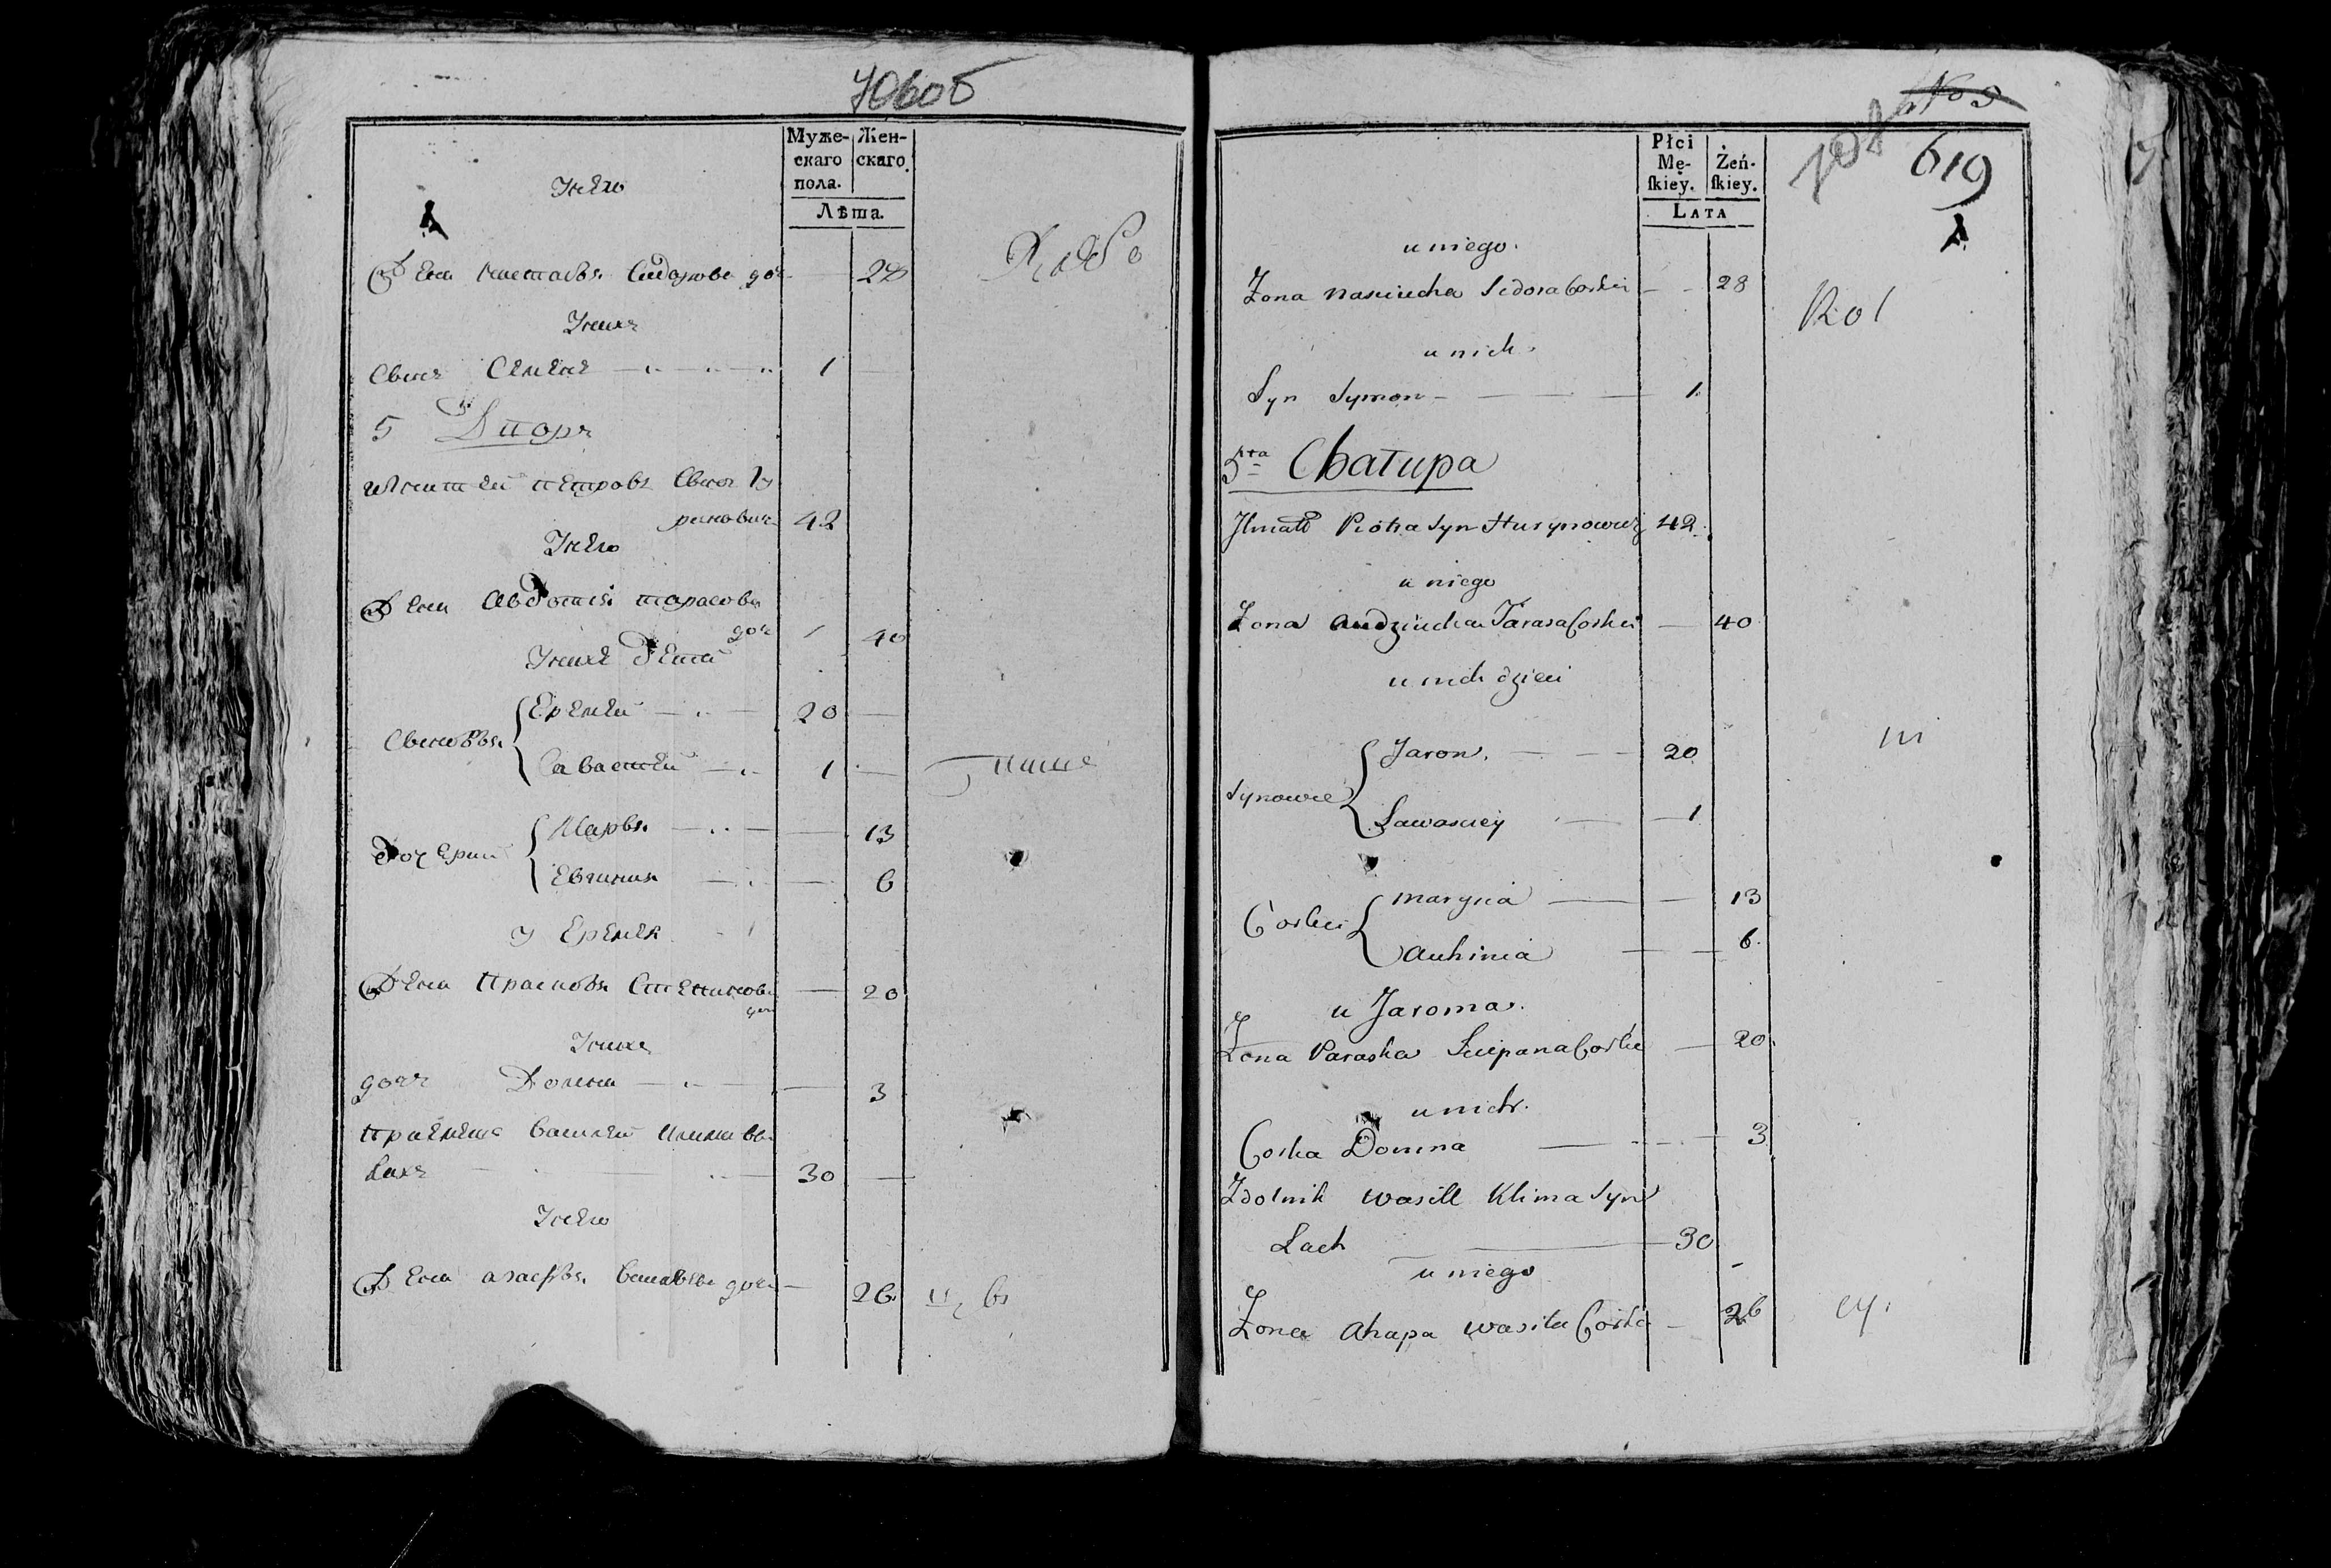 Муже-
скаго
пола.
Жен-
скаго.
Лѣта.
У него
Жена Настасья Сидорова доч
28
У нихъ
Сынъ Семенъ 1
5 Дворъ
Игнатей Петровъ Сынъ Гу
риновичь 42
У него
Жена Авдотья Тарасова
доч 40
У нихъ дети
Сыновья
Еремей 20
Савастей 1
Дочери
Марья 13
Евгиния 6
У Еремея
Жена Прасковья Степанова
доч 20
У нихъ
дочь Домна 3
Приемышъ Василей Климовъ
Лахъ 30
У него
Жена Агафья Васильева дочь 26
Płci
Mę-
ſkiey.
Żeń-
ſkiey.
Lata
619
u niego.
Zona Nasciucha Sidora Corka 28
u nich
Syn Symon 1
5ta Chatupa
Jhnatt Piotra Syn Hurynowicz 42
u niego
Zona Audziucha Tarasa Corka 40
u nich dzieci
Synowie
Jarom 20
Sawasciey 1
Corki
Maryna 13
Auhinia 6
u Jaroma
Zona Paraska Sciepana Corka 20
u nich
Corka Domna 3
Zdolnik Wasill Klima Syn
Lach 30
u niego
Zona Ahapa Wasila Corka 26